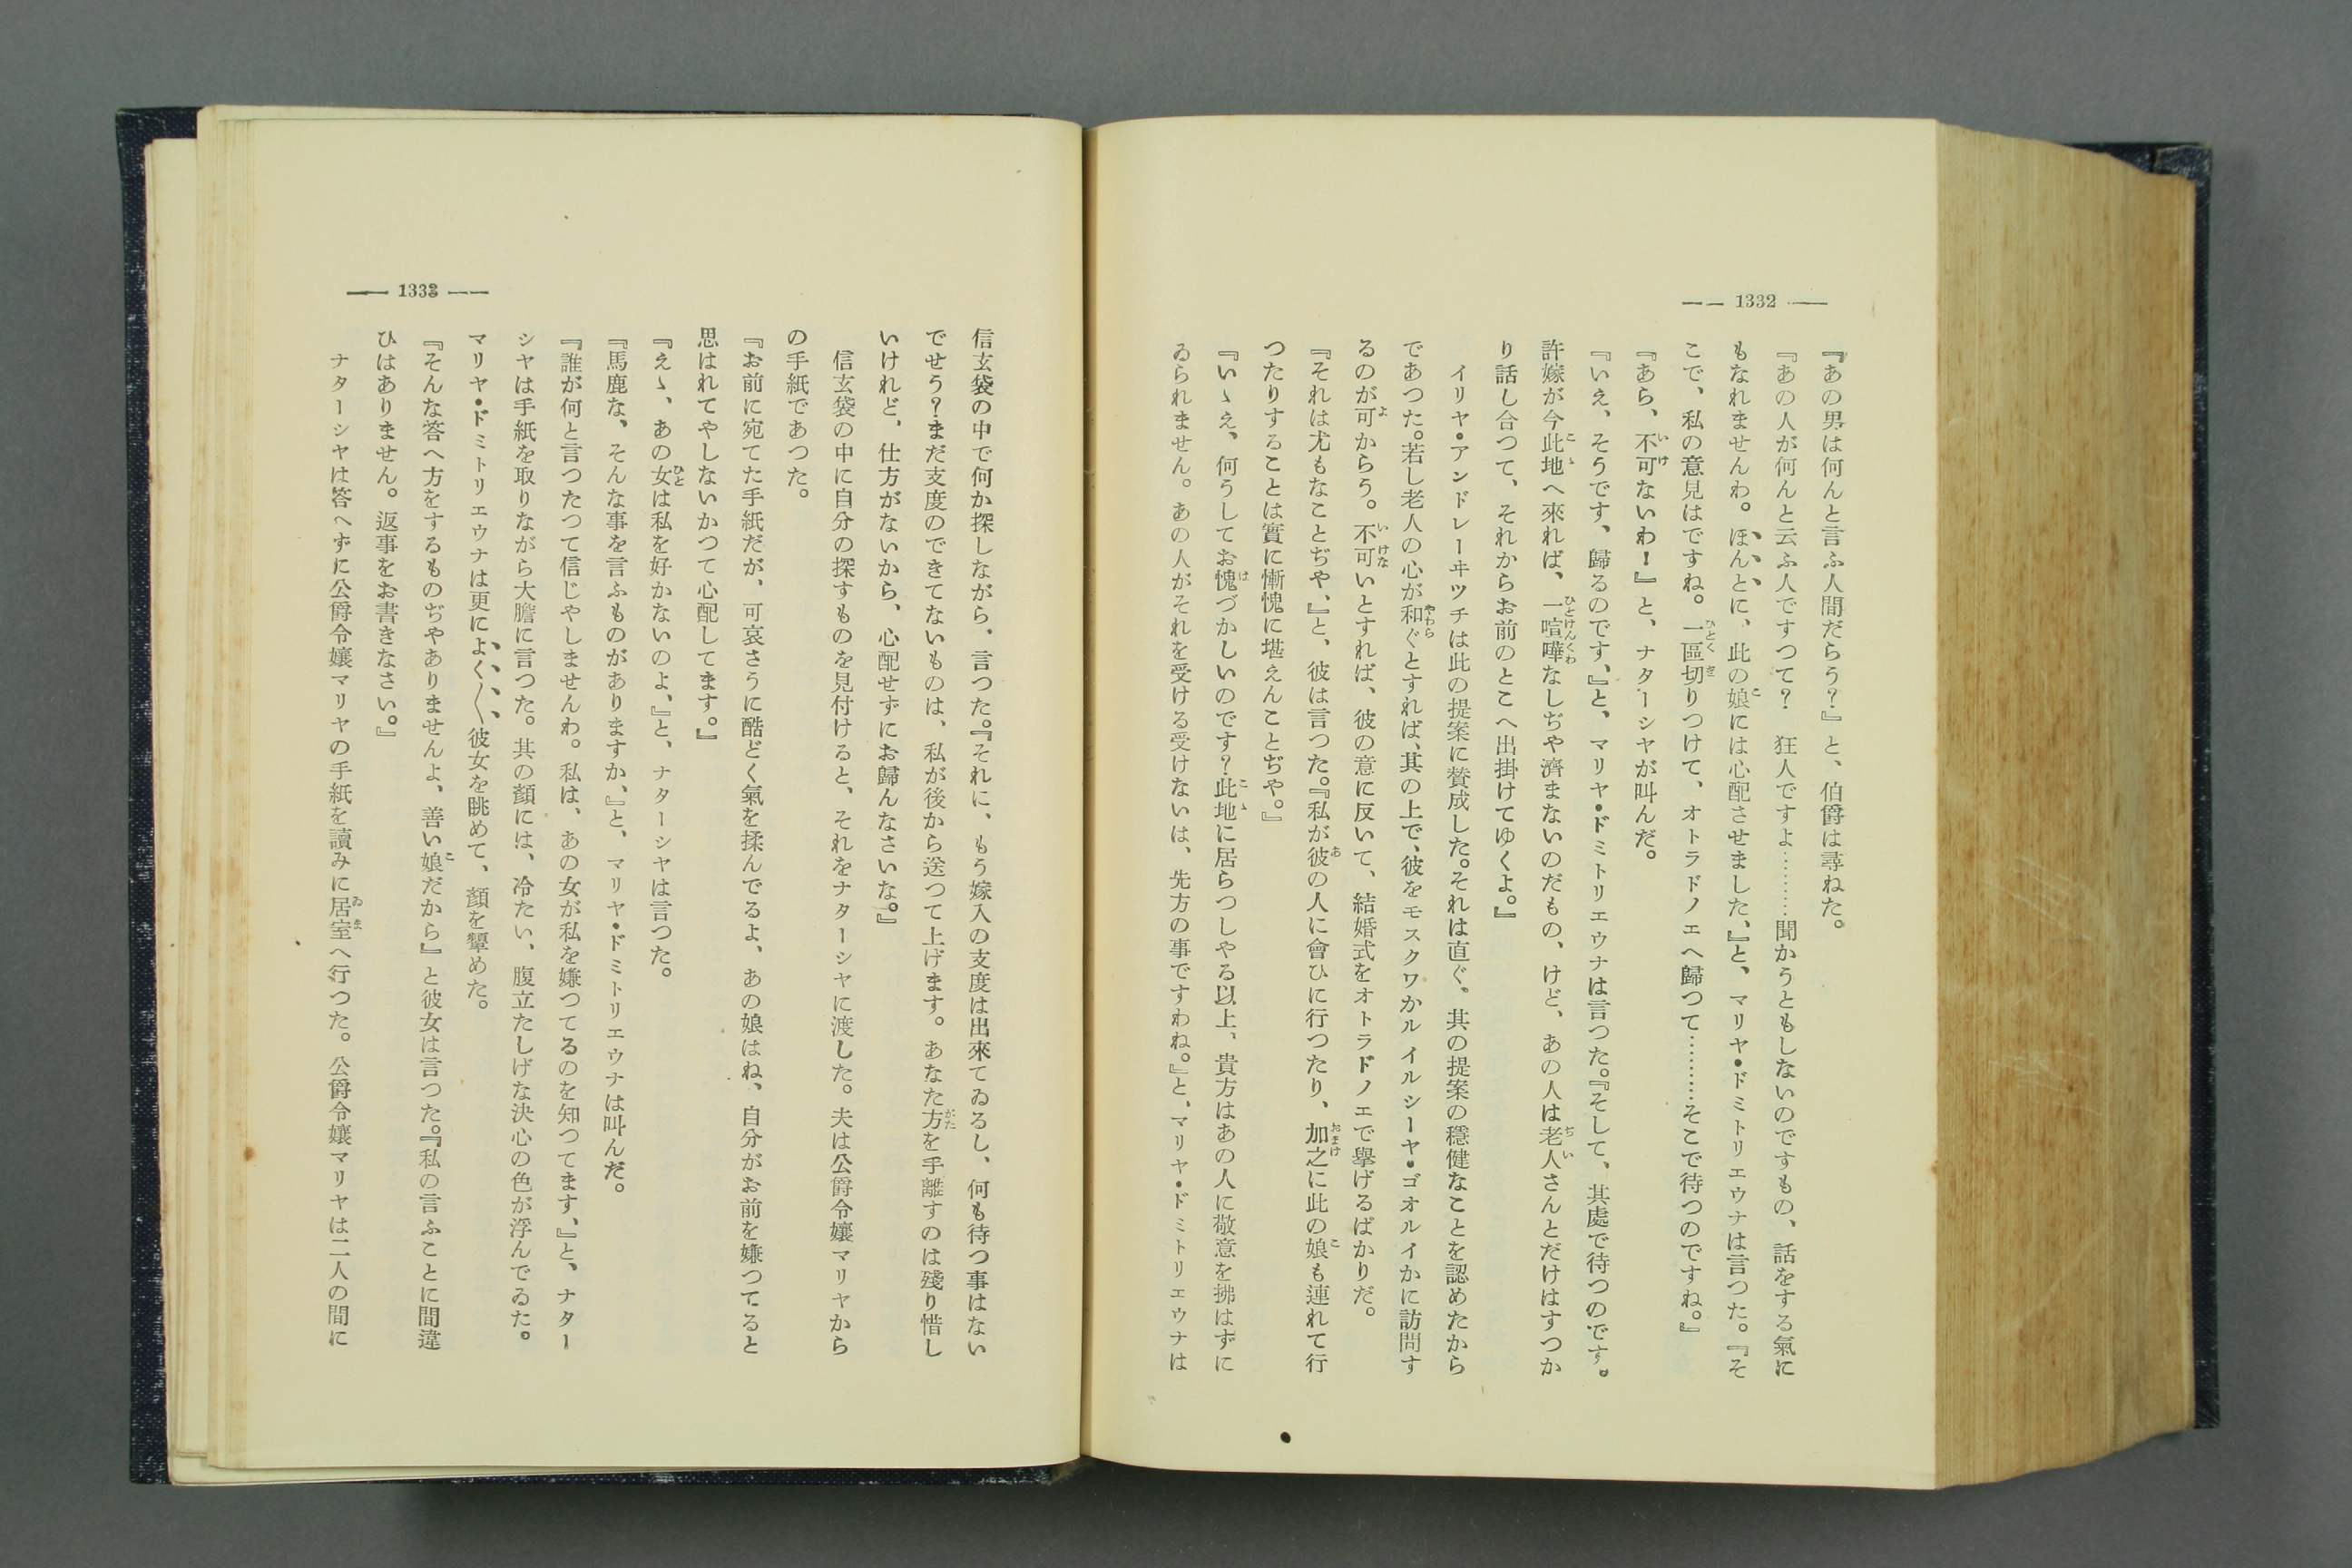 —— 1332 ——
『あの男は何んと言ふ人間だらう？』と、伯爵は尋ねた。
『あの人が何んと云ふ人ですつて？　狂人ですよ………聞かうともしないのですもの、話をする氣に
もなれませんわ。ほんとに、此の娘には心配させました、』と、マリヤ・ドミトリエウナは言つた。『そ
こで、私の意見はですね。一區切りつけて、オトラドノエへ歸つて………そこで待つのですね。』
『あら、不可ないわ！』と、ナターシヤが叫んだ。
『いえ、そうです、歸るのです、』と、マリヤ・ドミトリエウナは言つた。『そして、其處で待つのです。
許嫁が今此地へ來れば、一喧嘩なしぢや濟まないのだもの、けど、あの人は老人さんとだけはすつか
り話し合つて、それからお前のとこへ出掛けてゆくよ。』
イリヤ・アンドレーヰツチは此の提案に賛成した。それは直ぐ、其の提案の穩健なことを認めたから
であつた。若し老人の心が和ぐとすれば、其の上で、彼をモスクワかル イルシーヤ・ゴオルイかに訪問す
るのが可からう。不可いとすれば、彼の意に反いて、結婚式をオトラドノエで擧げるばかりだ。
『それは尤もなことぢや、』と、彼は言つた。『私が彼の人に會ひに行つたり、加之に此の娘も連れて行
つたりすることは實に慚愧に堪えんことぢや。』
『いゝえ、何うしてお愧づかしいのです？此地に居らつしやる以上、貴方はあの人に敬意を拂はずに
ゐられません。あの人がそれを受ける受けないは、先方の事ですわね。』と、マリヤ・ドミトリエウナは
—— 1333 ——
信玄袋の中で何か探しながら、言つた。『それに、もう嫁入の支度は出來てゐるし、何も待つ事はない
でせう？まだ支度のできてないものは、私が後から送つて上げます。あなた方を手離すのは殘り惜し
いけれど、仕方がないから、心配せずにお歸んなさいな。』
信玄袋の中に自分の探すものを見付けると、それをナターシヤに渡した。夫は公爵令孃マリヤから
の手紙であつた。
『お前に宛てた手紙だが、可哀さうに酷どく氣を揉んでるよ、あの娘はね、自分がお前を嫌つてると
思はれてやしないかつて心配してます。』
『えゝ、あの女は私を好かないのよ、』と、ナターシヤは言つた。
『馬鹿な、そんな事を言ふものがありますか、』と、マリヤ・ドミトリエウナは叫んだ。
『誰が何と言つたつて信じやしませんわ。私は、あの女が私を嫌つてるのを知つてます、』と、ナター
シヤは手紙を取りながら大膽に言つた。其の顏には、冷たい、腹立たしげな決心の色が浮んでゐた。
マリヤ・ドミトリエウナは更によく〱彼女を眺めて、顏を顰めた。
『そんな答へ方をするものぢやありませんよ、善い娘だから』と彼女は言つた。『私の言ふことに間違
ひはありません。返事をお書きなさい。』
ナターシヤは答へずに公爵令孃マリヤの手紙を讀みに居室へ行つた。公爵令孃マリヤは二人の間に